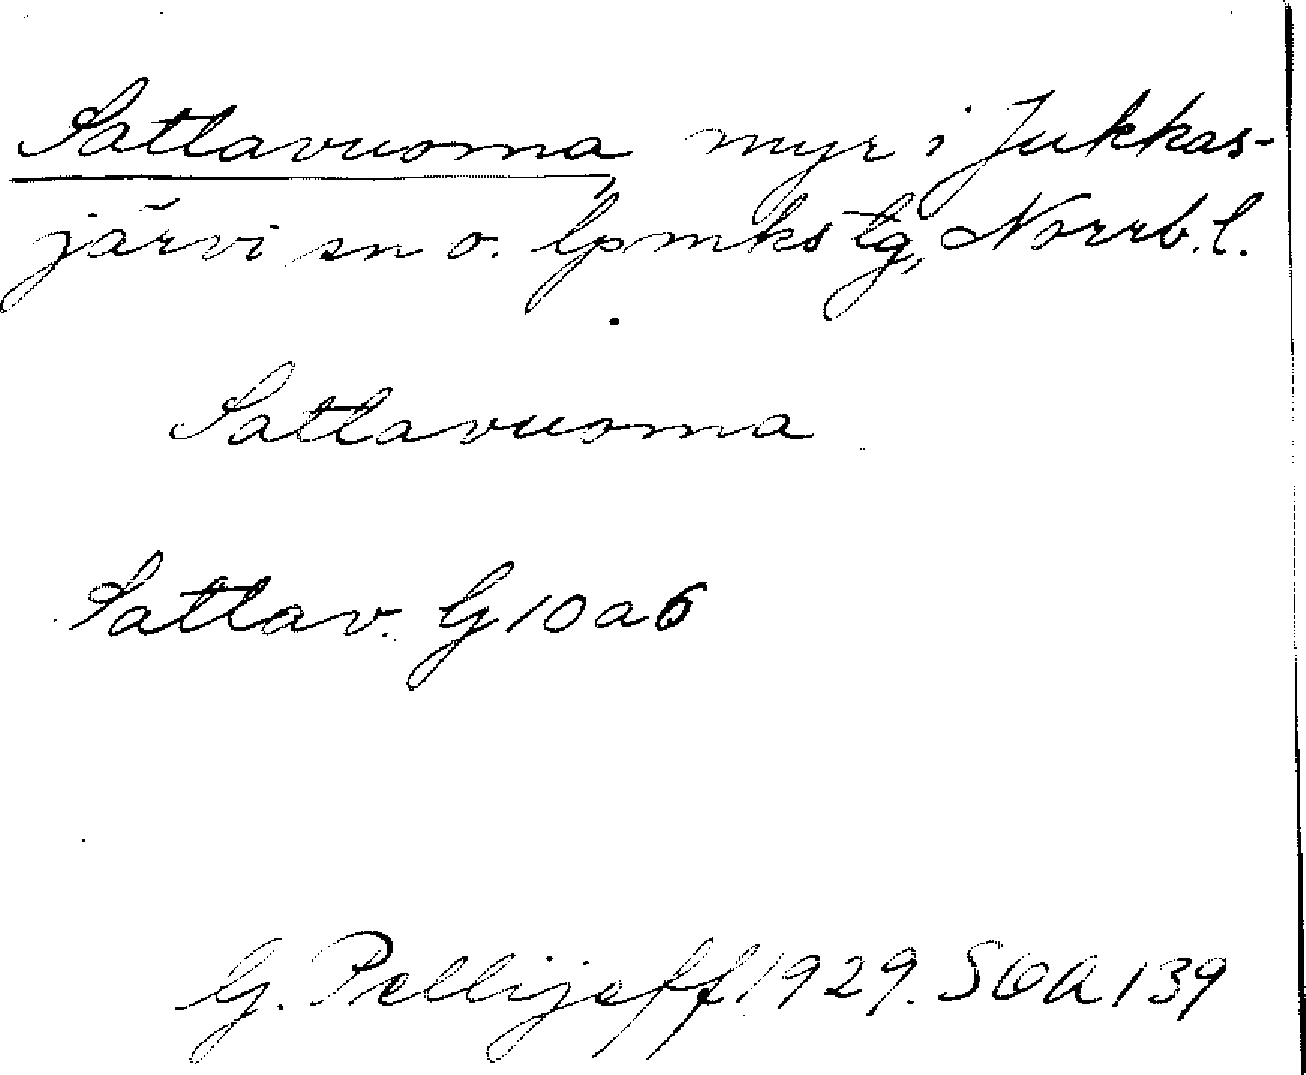 Sattavuoma, myr i Jukkas-
järvi sn o. lpmks tg, Norrb. l.
Sattavuoma
Sattav. G 10 a 6
G. Pellijeff 1929. SOA 139